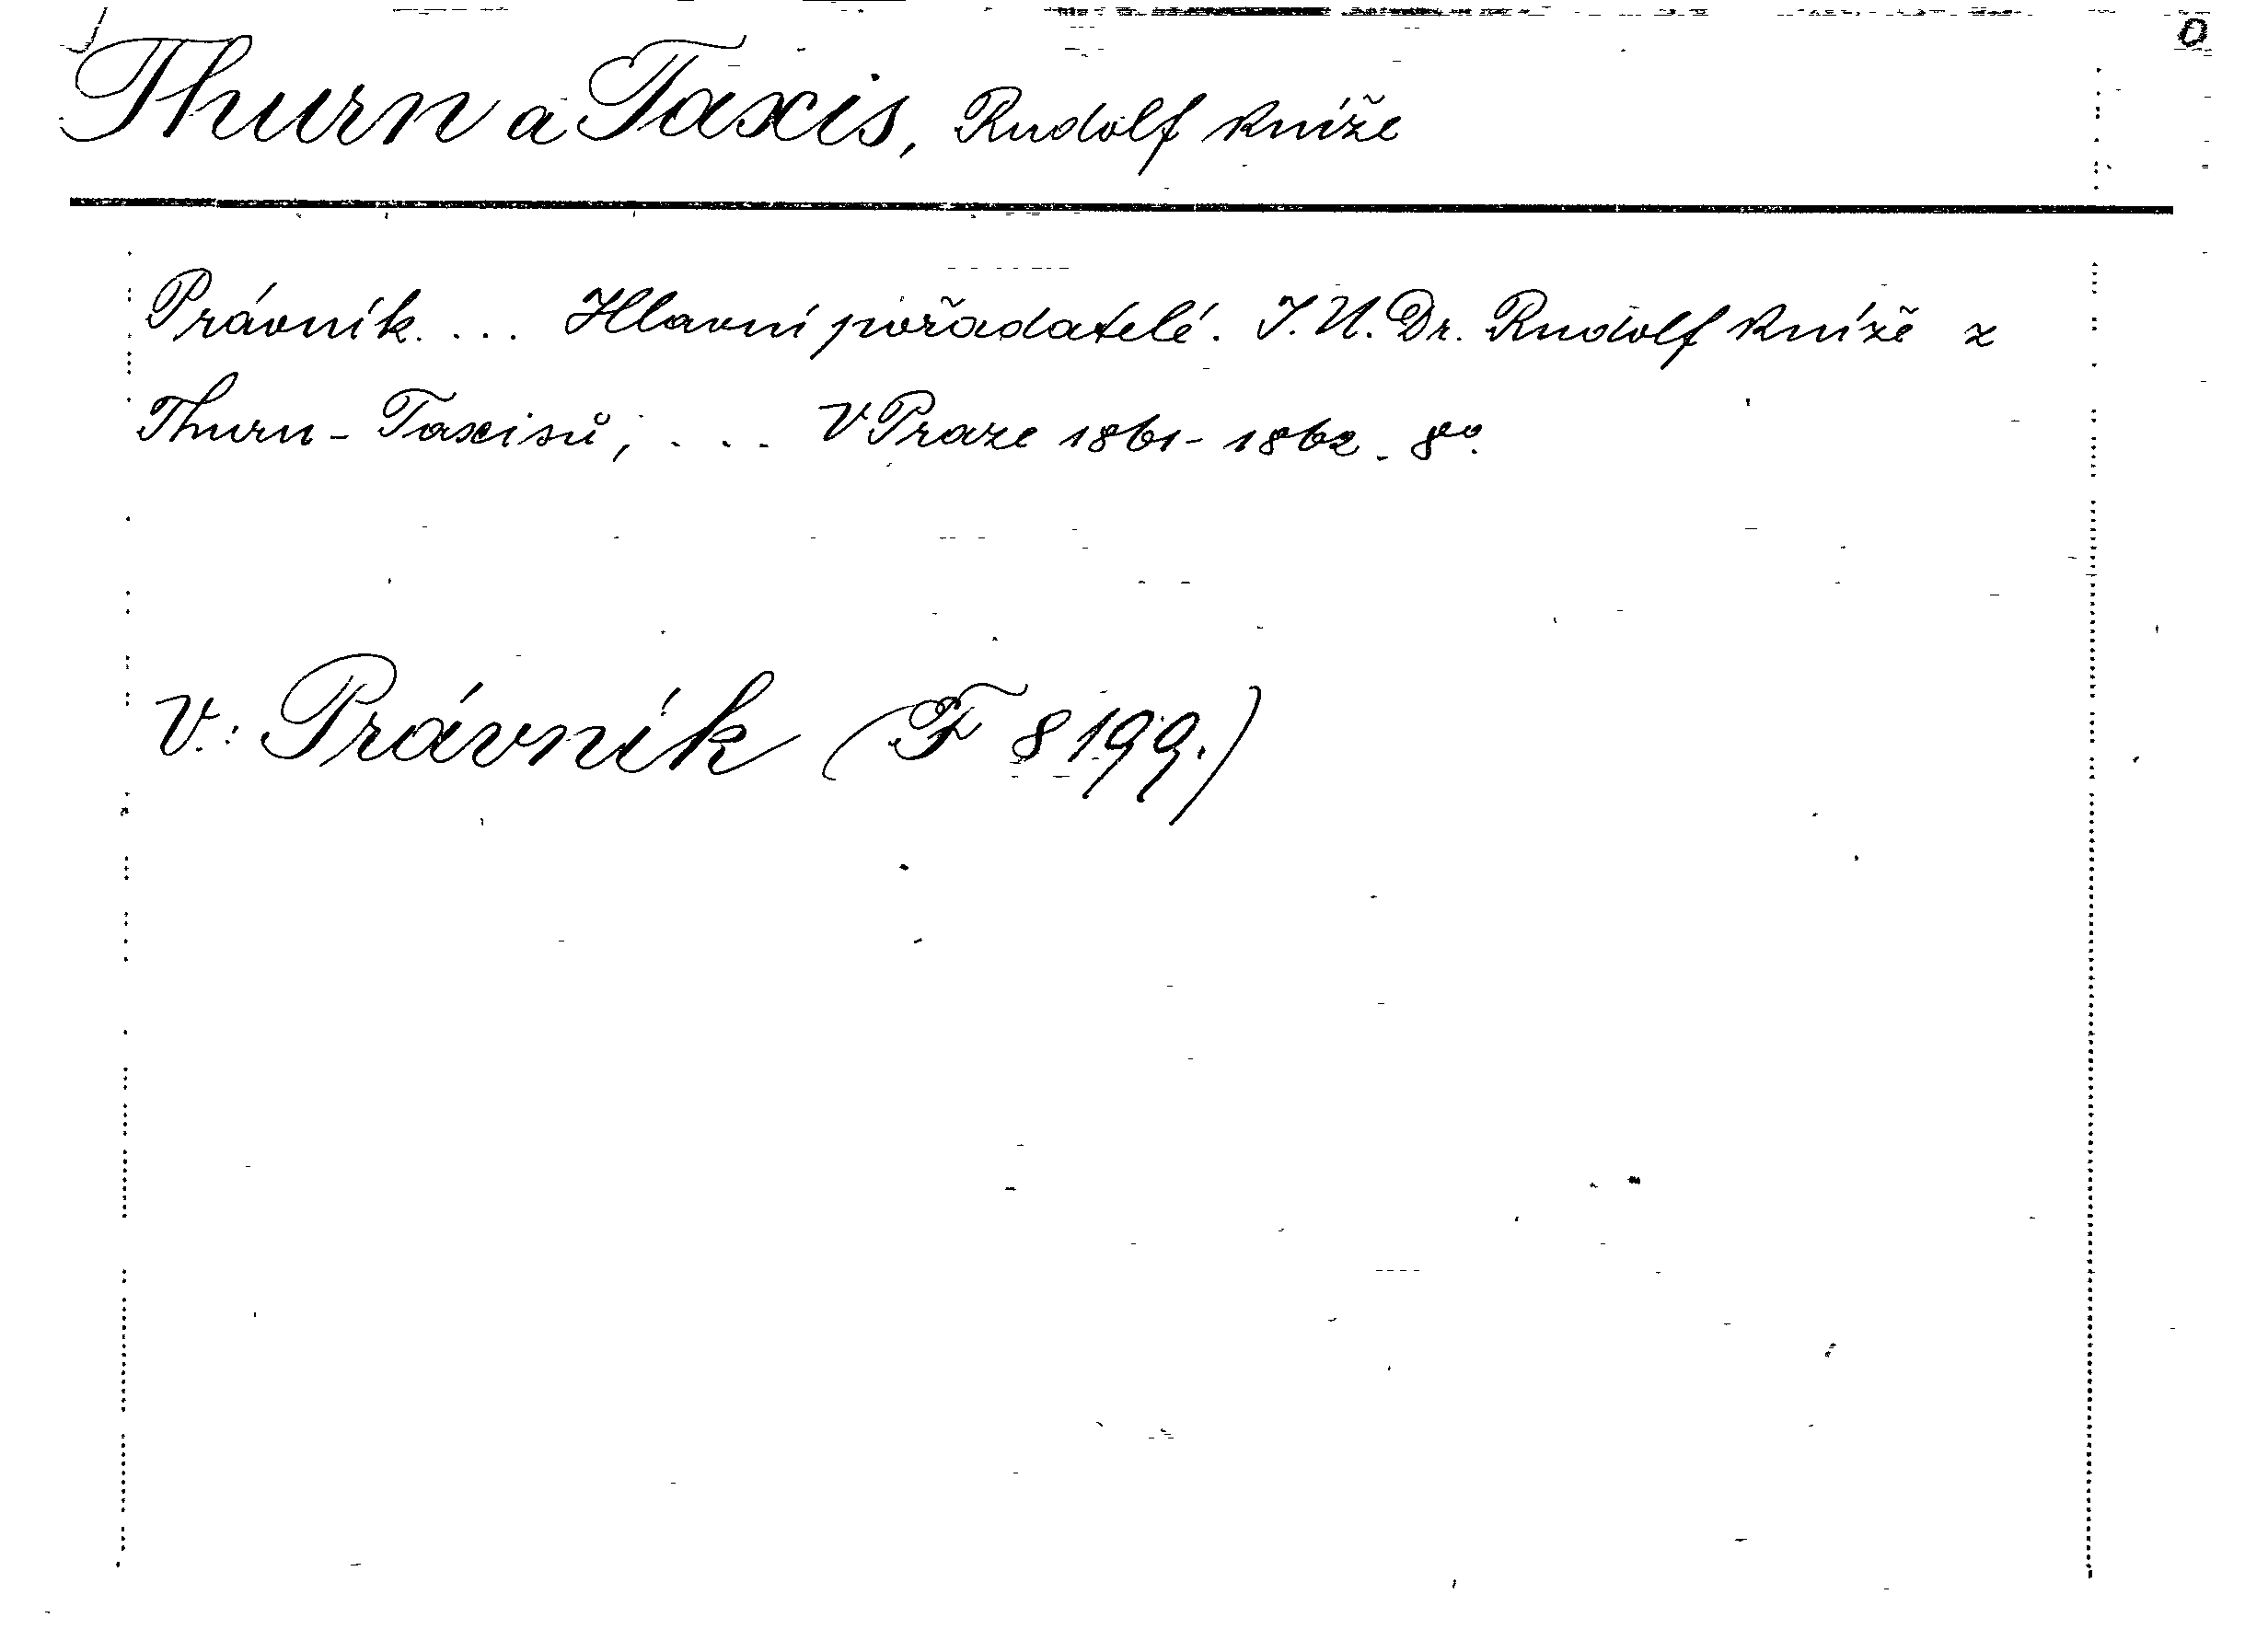 Thurn a Taxis, Rudolf kníže
Právník. ... Hlavní pořadatelé. J. U. Dr. Rudolf kníže z
Thurn-Taxisů, ... V Praze 1861-1862. 8º.
V.: Právník (F 8199.)